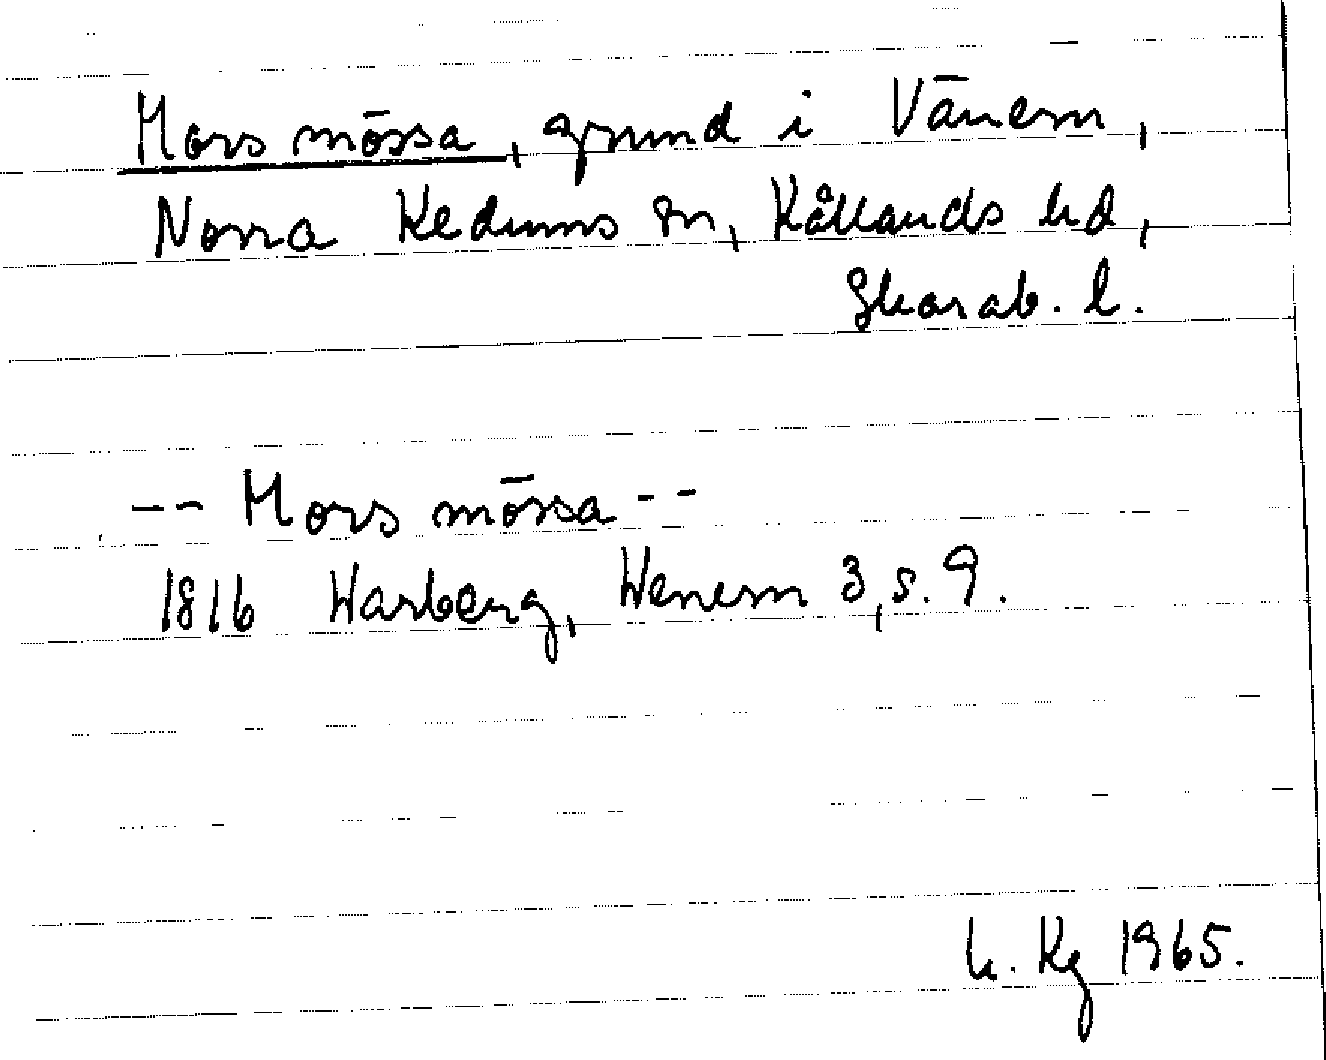 Mors mössa, grund i Vänern,
Norra Kedums sn, Kållands hd,
Skarab. l.
-- Mors mössa --
1816 Warberg, Wenern 3, s. 9.
h. Kg 1965.